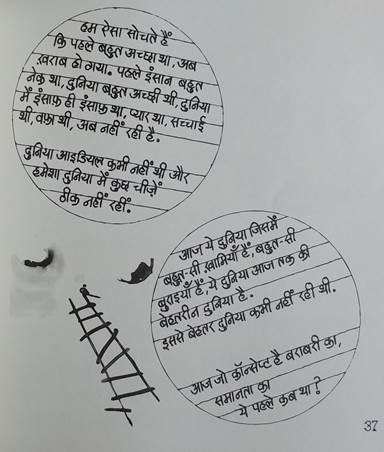 हम ऐसा सोचते हैं
कि पहले बहुत अच्छा था, अब
ख़राब हो गया। पहले इंसान बहुत
नेक था, दुनिया बहुत अच्छी थी, दुनिया
में इंसाफ़ ही इंसाफ़ था, प्यार था, सच्चाई
थी, वफ़ा थी, अब नहीं रही है.
दुनिया आइडियल कभी नहीं थी और
हमेशा दुनिया में कुछ चीज़ें
ठीक नहीं रहीं.
आज ये दुनिया जिसमें
बहुत-सी ख़ामियाँ हैं, बहुत-सी
बुराइयाँ हैं, ये दुनिया आज तक की
बेहतरीन दुनिया है.
इससे बेहतर दुनिया कभी नहीं रही थी.
आज जो कॉन्सेप्ट है बराबरी का,
समानता का
ये पहले कब था ?
37